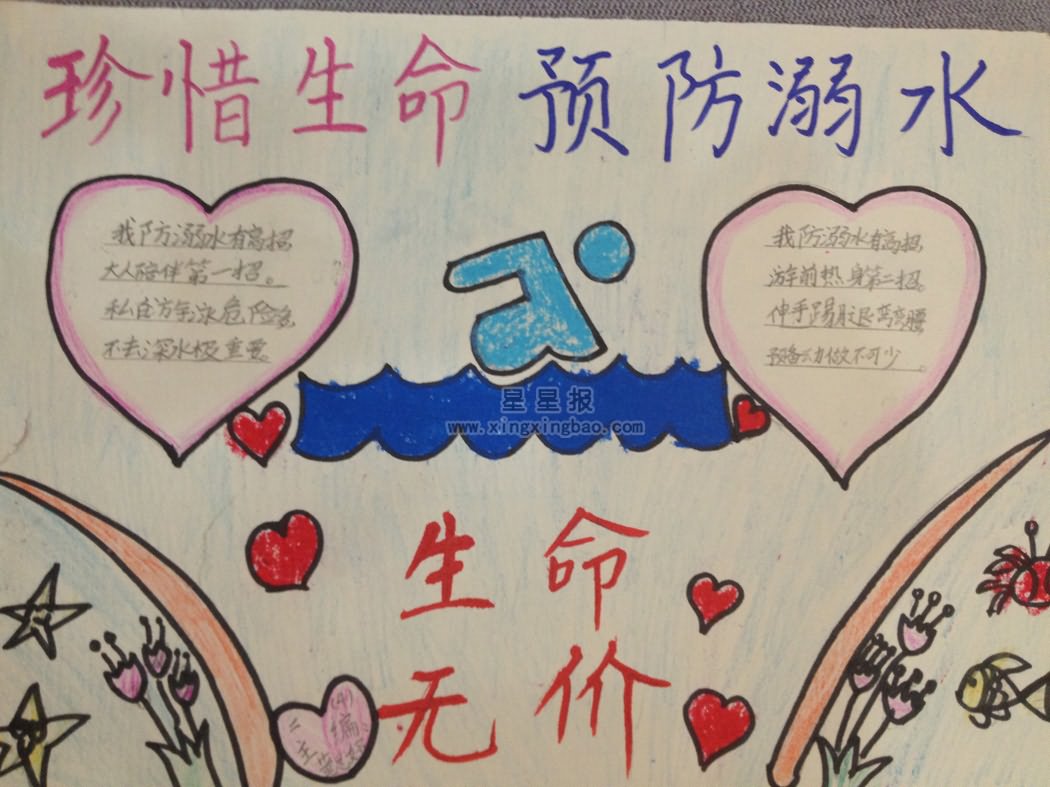 珍惜生命 预防溺水
我防溺水有高招
大人陪伴第一招。
私自游泳危险多
不去深水极重要。
我防溺水有高招,
游泳前热身第二招。
伸手踢腿弯弯腰
预备动做不可少。
星星报
www.xingxingbao.com
生命
无价
(4)
编